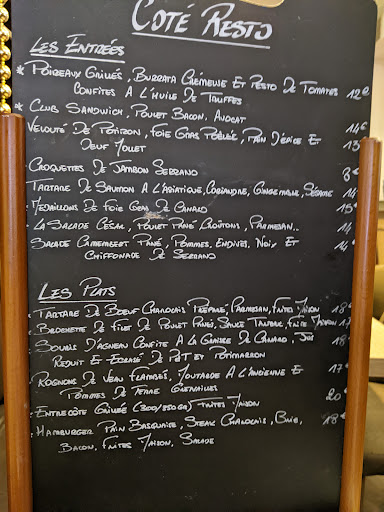 COTÉ RESTO
LES ENTRÉES
* POIREAUX GRILLÉS, BURRATA CRÉMEUSE ET PESTO DE TOMATES
CONFITES A L'HUILE DE TRUFFES 12€
* CLUB SANDWICH, POULET BACON, AVOCAT 14€
VELOUTÉ DE POTIRON, FOIE GRAS POÊLÉE, PAIN D'ÉPICE ET 13€
OEUF MOLLET
CROQUETTES DE JAMBON SERRANO 8€
TARTARE DE SAUMON A L'ASIATIQUE, CORIANDRE, GINGEMBRE, SÉSAME 14€
. MEDAILLONS DE FOIE GRAS DE CANARD 15€
. LA SALADE CÉSAR, POULET PANÉ, CROÛTONS, PARMESAN.. 14
. SALADE CAMEMBERT PANÉ, POMMES, ENDIVES, NOIX ET 14€
CHIFFONADE DE SERRANO
LES PLATS
. TARTARE DE BOEUF CHAROLAIS PRÉPARÉ, PARMESAN, FRITES MAISON 18€
. BROCHETTE DE FILET DE POULET PANÉ, SAUCE TARTARE, FRITE MAISON 17
. SOURIS D'AGNEAU CONFITE A LA GRAISSE DE CANARD, JUS 18€
REDUIT ET ECRASÉ DE PDT ET POTIMARRON
. ROGNONS DE VEAU FLAMBÉS, MOUTARDE A L'ANCIENNE ET 17€
POMMES DE TERRE GRENAILLES
. ENTRECÔTE GRILLÉE (300/350GR) FRITES MAISON 20€
. HAMBURGER PAIN BASQUAISE, STEAK CHAROLAIS, BRIE, 18€
BACON, FRITES MAISON, SALADE